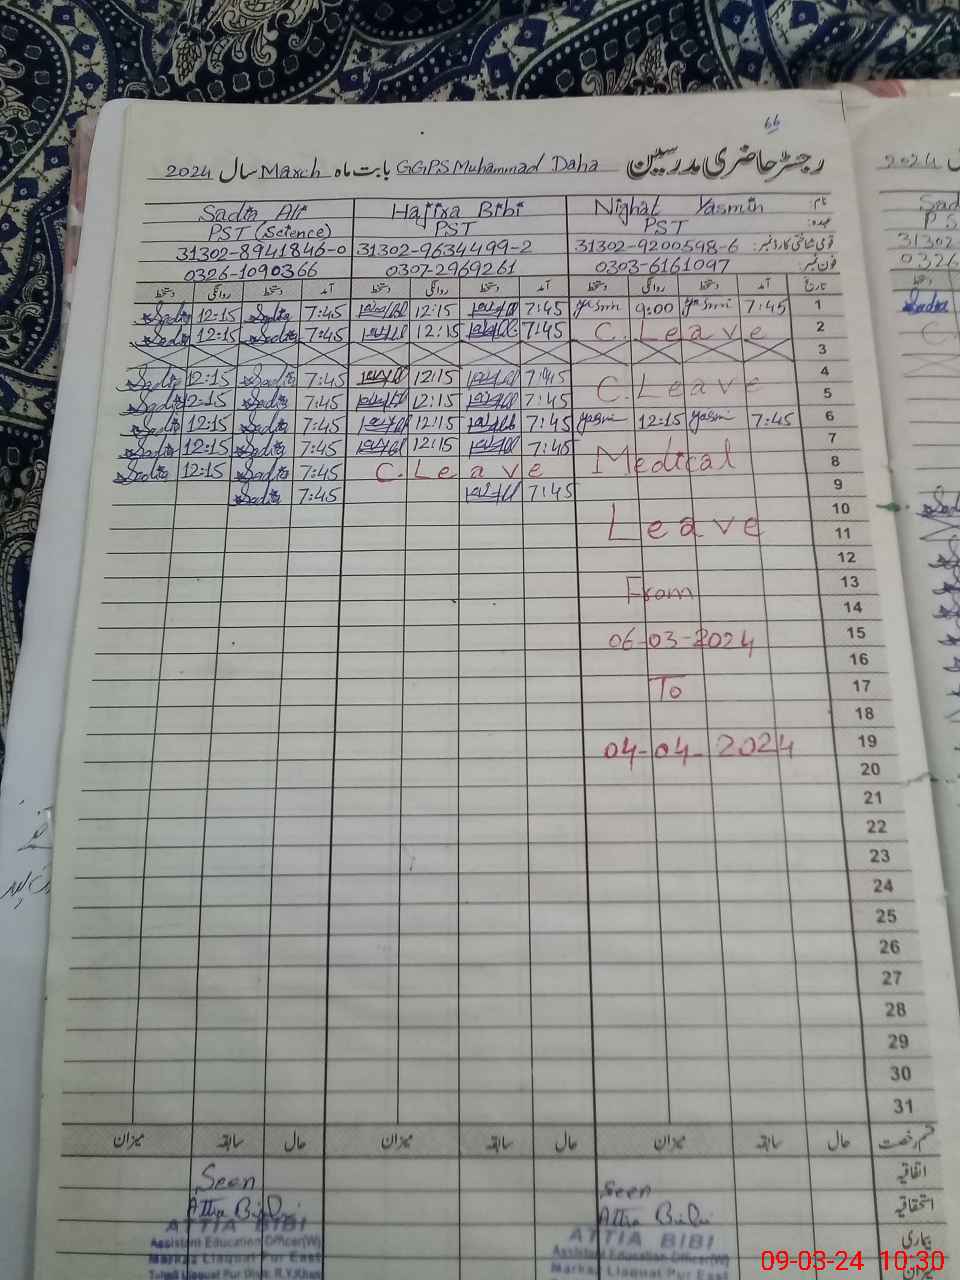 66
رجسٹر حاضری مدرسین GGPS Muhammad Daha بابت ماہ March سال 2024
نام: Nighat Yasmin Hajira Bibi Sadia Ali
عہدہ: PST PST PST (Science)
قومی شناختی کارڈ نمبر: 31302-9200598-6 31302-9634499-2 31302-8941846-0
فون نمبر: 0303-6161097 0307-2969261 0326-1090366
تاریخ آمد دستخط روانگی دستخط آمد دستخط روانگی دستخط آمد دستخط روانگی دستخط
1 7:45 Yasmin 9:00 Yasmin 7:45 12:15 7:45 Sadia 12:15 Sadia
2 C. Leave 7:45 12:15 7:45 Sadia 12:15 Sadia
3
4 C. Leave 7:45 12:15 7:45 Sadia 12:15 Sadia
5 7:45 12:15 7:45 Sadia 12:15 Sadia
6 7:45 Yasmin 12:15 Yasmin 7:45 12:15 7:45 Sadia 12:15 Sadia
7 Medical 7:45 12:15 7:45 Sadia 12:15 Sadia
8 C. Leave 7:45 Sadia 12:15 Sadia
9 7:45 7:45 Sadia
10 Leave
11
12
13 From
14
15 06-03-2024
16
17 To
18
19 04-04-2024
20
21
22
23
24
25
26
27
28
29
30
31
قسم رخصت حال سابقہ میزان حال سابقہ میزان حال سابقہ میزان
اتفاقیہ
استحقاقیہ
بیماری
میزان
Seen
Attia Bibi
ATTIA BIBI
Assistant Education Officer(W)
Markaz Liaquat Pur East
Tehsil Liaquat Pur Distt. R.Y.Khan
Seen
Attia Bibi
ATTIA BIBI
Assistant Education Officer(W)
Markaz Liaquat Pur East
2024
31302
0326
Sadia
09-03-24 10:30